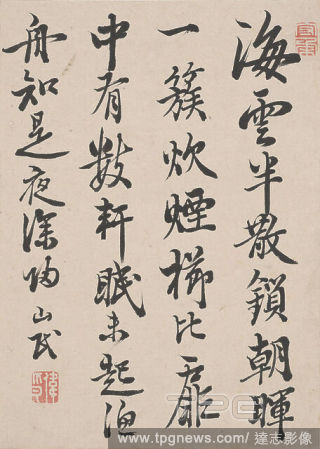 海雲半散鎖朝暉
一簇炊煙櫛比扉
中有數軒眠未起漁
舟知是夜深歸 山民
TPG
www.tpgnews.com / 達志影像